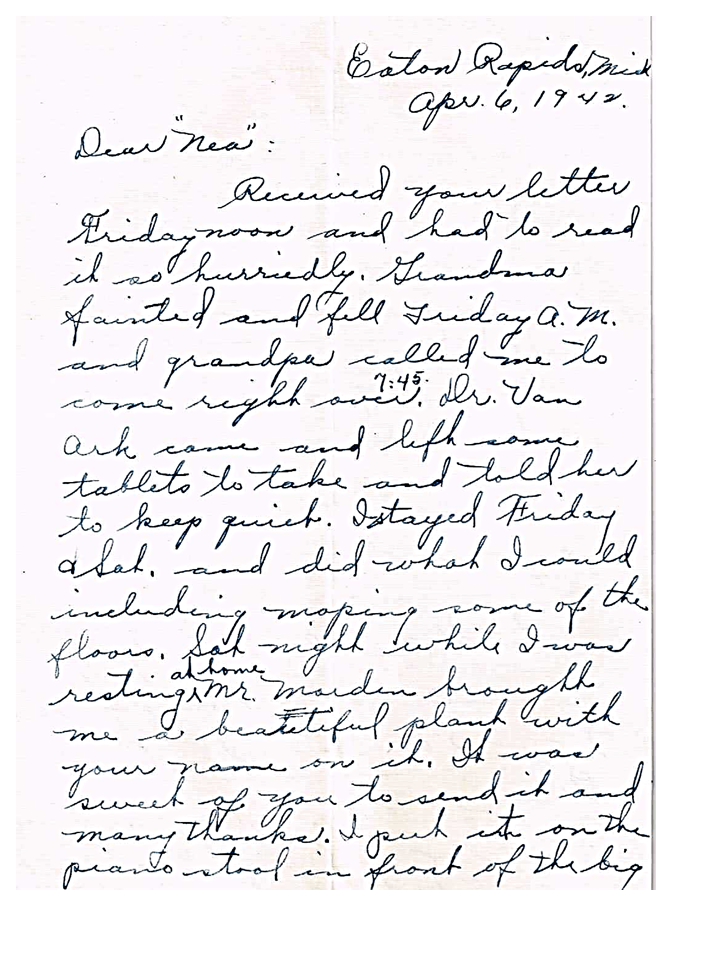 Eaton Rapids, Mich
Apr. 6, 1942.
Dear "Nea":
Received your letter
Friday noon and had to read
it so hurriedly. Grandma
fainted and fell Friday A.M.
and grandpa called me to
7:45.
come right over. Dr. Van
Ark came and left some
tablets to take and told her
to keep quiet. I stayed Friday
& Sat. and did what I could
including moping some of the
floors. Sat night while I was
at home
resting Mr. Marden brought
me a beautiful plant with
your name on it. It was
sweet of you to send it and
many thanks. I put it on the
piano stool in front of the big